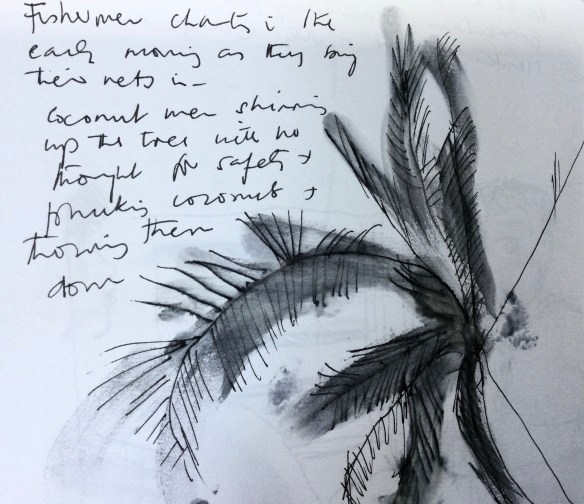 Fishermen chants in the
early morning as they bring
their nets in -
coconut men shinning
up the tree with no
thought for safety +
plucking coconuts +
throwing them
down